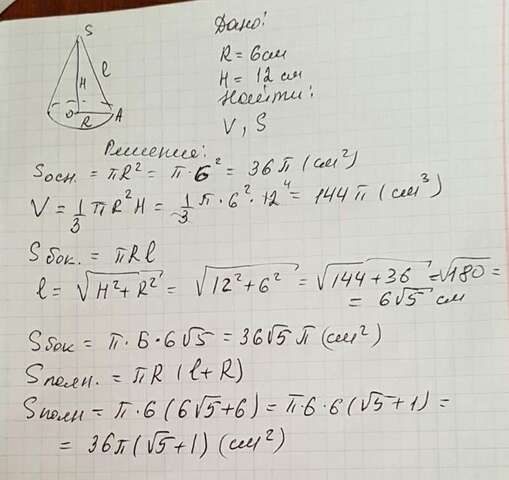 S
H
l
O
R
A
Дано:
R = 6 см
H = 12 см
Найти:
V, S
Решение:
Sосн. = πR² = π·6² = 36π (см²)
V = 1/3 πR²H = 1/3 π·6²·12⁴ = 144π (см³)
Sбок. = πRl
l = √(H²+R²) = √(12²+6²) = √(144+36) = √180 =
= 6√5 см
Sбок = π·6·6√5 = 36√5 π (см²)
Sполн. = πR (l+R)
Sполн = π·6(6√5+6) = π·6·6(√5+1) =
= 36π(√5+1) (см²)